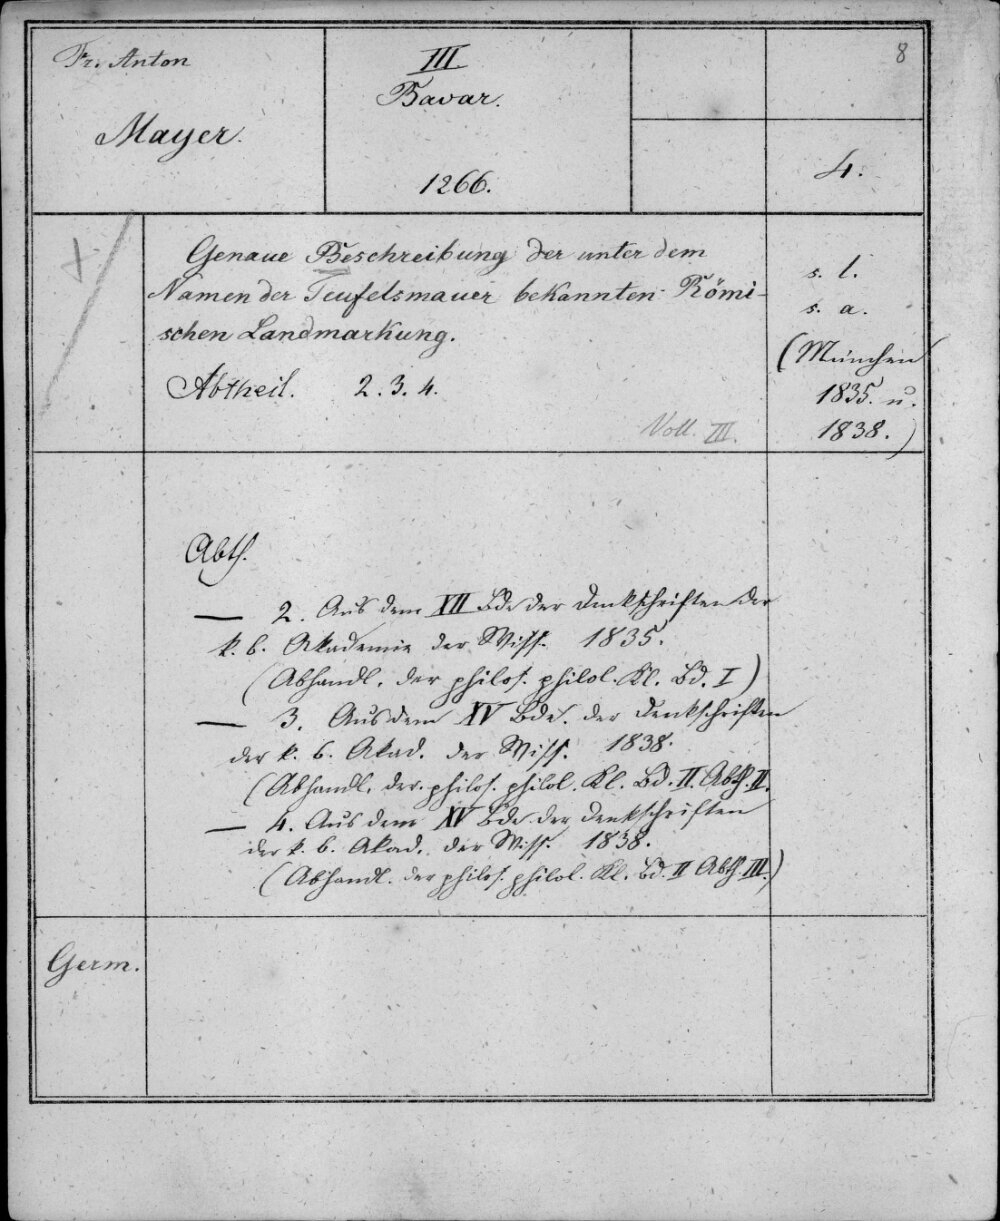 Fr. Anton
Mayer.
III
Bavar.
1266.
8
4.
Genaue Beschreibung der unter dem
Namen der Teufelsmauer bekannten Römi-
schen Landmarkung.
Abtheil. 2. 3. 4.
Voll. III.
s. l.
s. a.
(München
1835. u.
1838.)
Abth.
— 2. Aus dem XII Bde der Denkschriften der
k. b. Akademie der Wiss. 1835.
(Abhandl. der philos. philol. Kl. Bd. I)
— 3. Aus dem XV Bde. der Denkschriften
der k. b. Akad. der Wiss. 1838.
(Abhandl. der philos. philol. Kl. Bd. II. Abth. II.
— 4. Aus dem XV Bde der Denkschriften
der k. b. Akad. der Wiss. 1838.
(Abhandl. der philos. philol. Kl. Bd. II Abth. III.)
Germ.